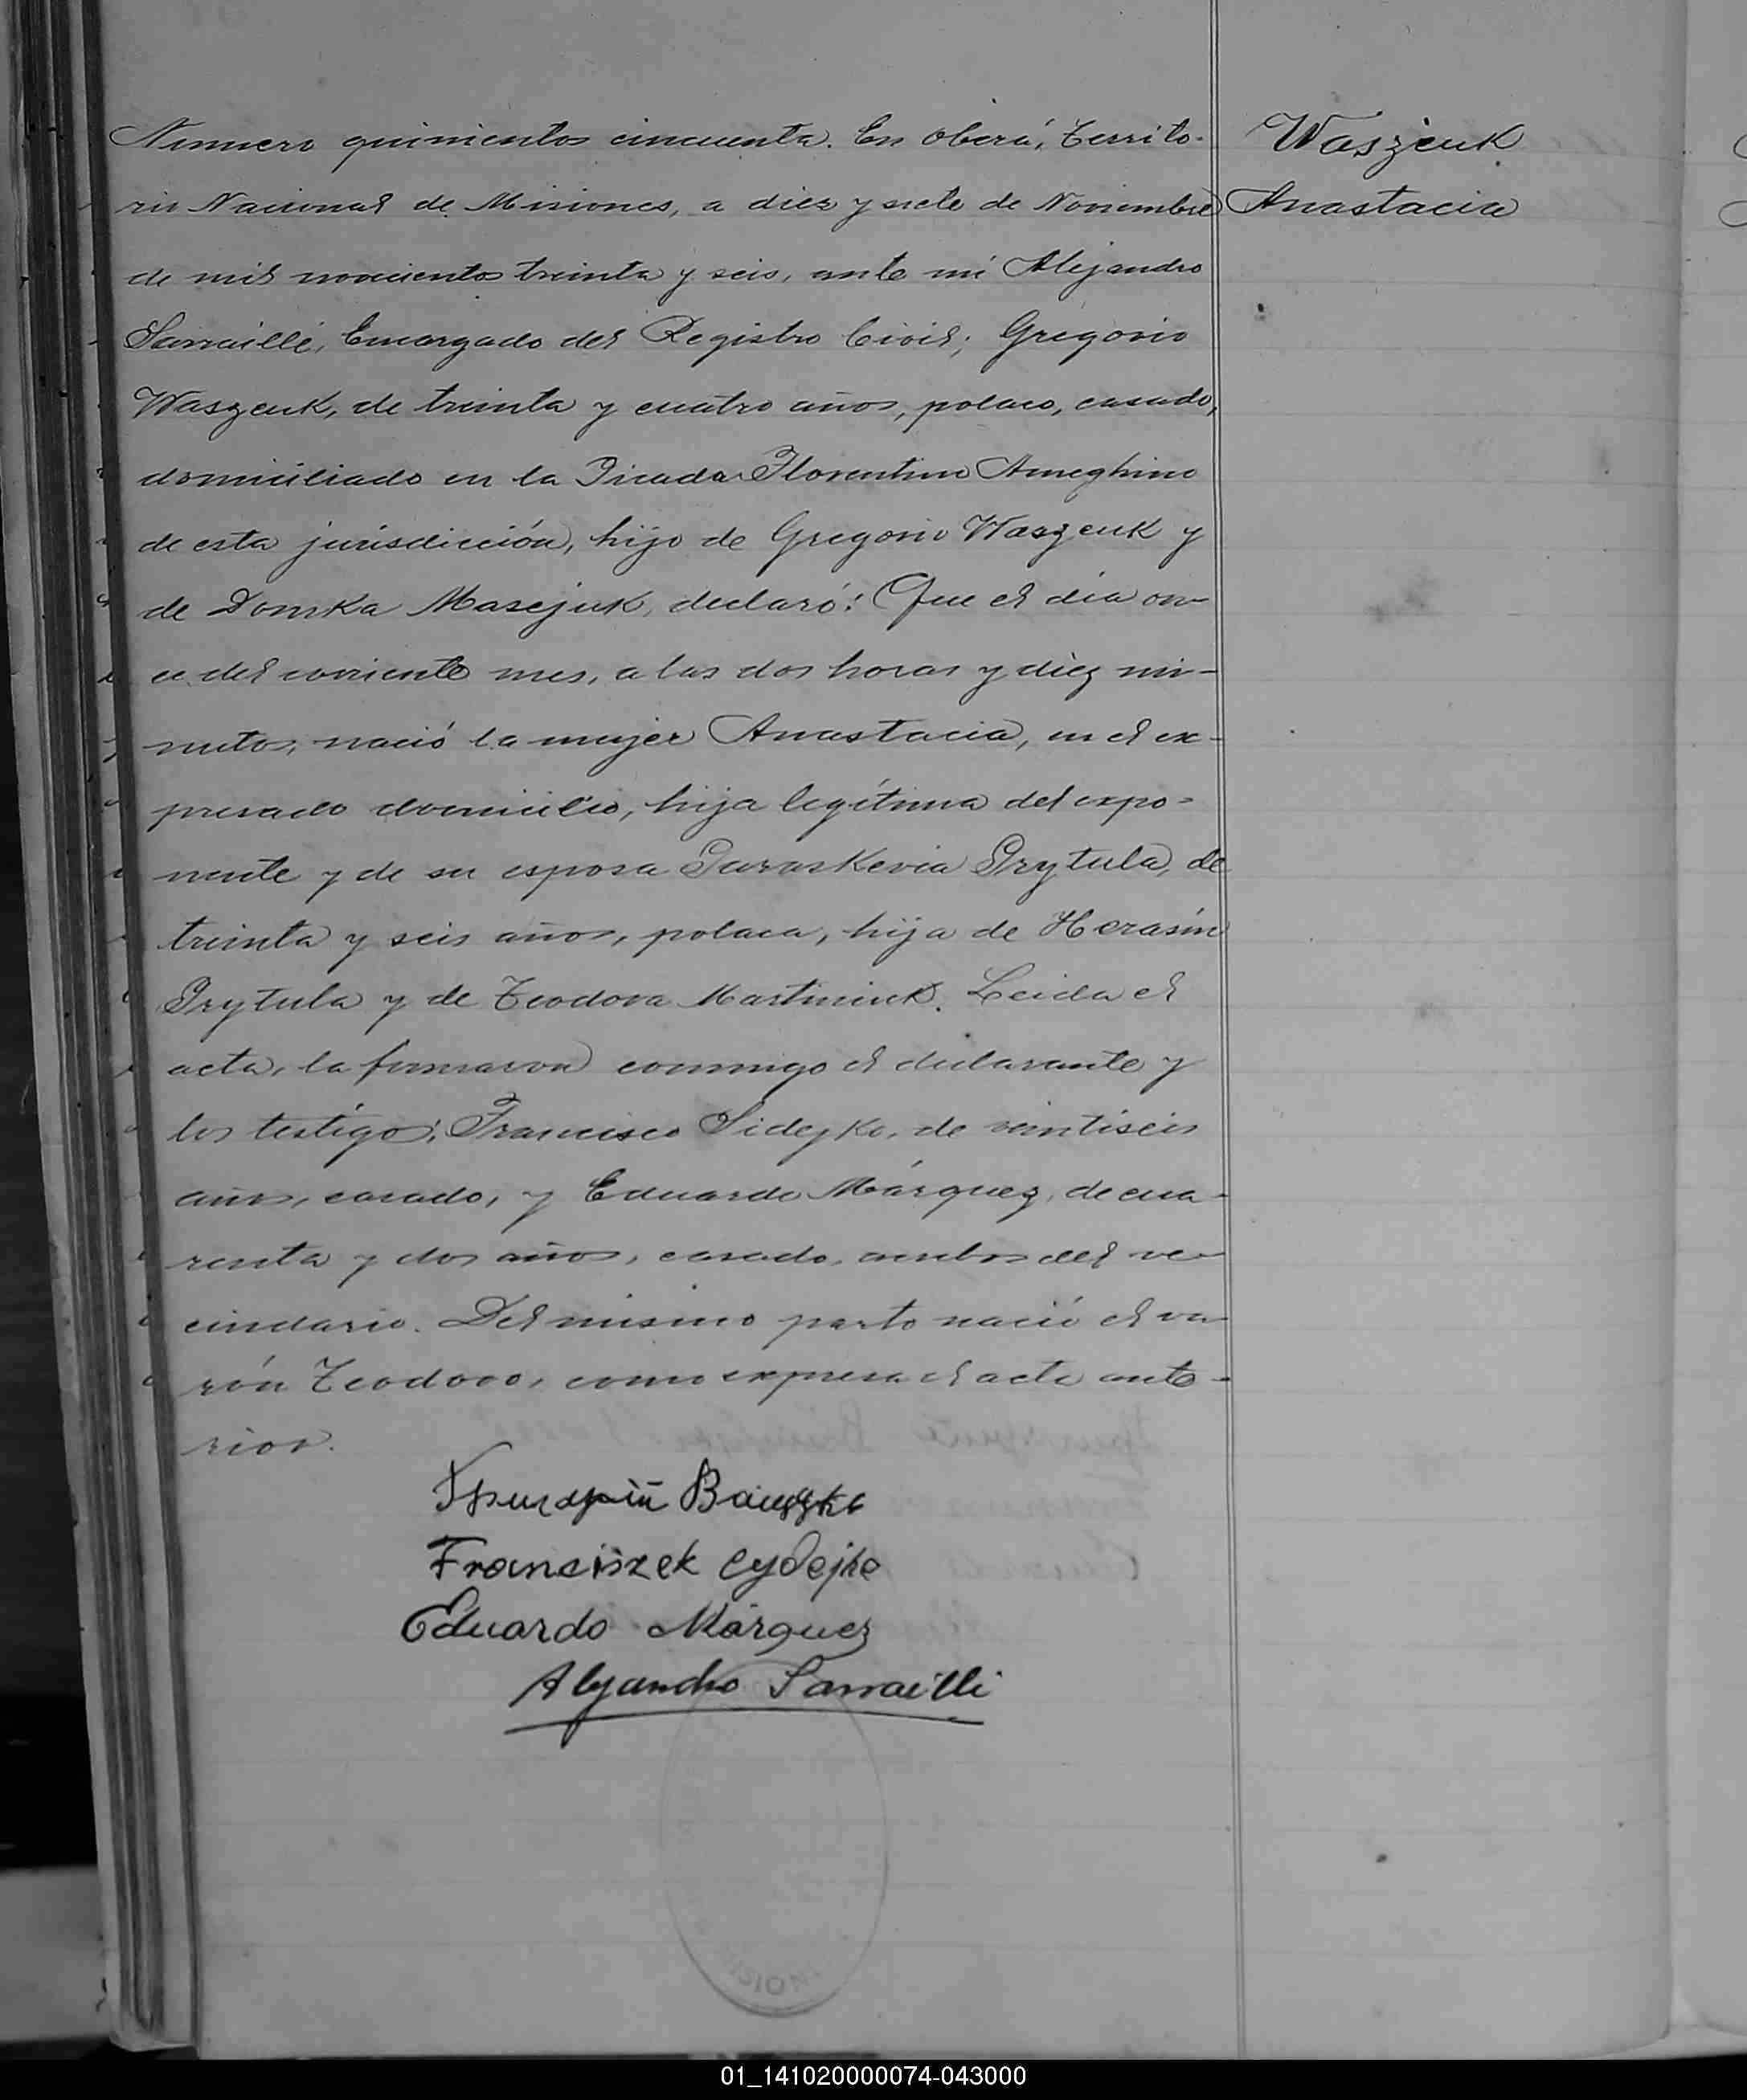 Numero quinientos cincuenta. En Oberá, Territo-
rio Nacional de Misiones, a diez y siete de Noviembre
de mil novecientos treinta y seis, ante mi Alejandro
Sarraillé, Encargado del Registro Civil; Gregorio
Waszeuk, de treinta y cuatro años, polaco, casado,
domiciliado en la Picada Florentino Ameghino
de esta jurisdicción, hijo de Gregorio Waszeuk y
de Domka Masejuk, declaró: Que el día on-
ce del corriente mes, a las dos horas y diez mi-
nutos, nació la mujer Anastacia, en el ex-
presado domicilio, hija legítima del expo-
nente y de su esposa Paraskevia Prytula, de
treinta y seis años, polaca, hija de Herasin
Prytula y de Teodora Martiniuk. Leida el
acta, la firmaron conmigo el declarante y
los testigos: Francisco Sidejko, de veintiséis
años, casado, y Eduardo Márquez, de cua-
renta y dos años, casado, ambos del ve-
cindario. Del mismo parto nació el va-
rón Teodoro, como expresa el acta ante-
rior.
Waszeuk
Anastacia
Franciszek Cydejko
Eduardo Márquez
Alejandro Sarraillé
01_141020000074-043000